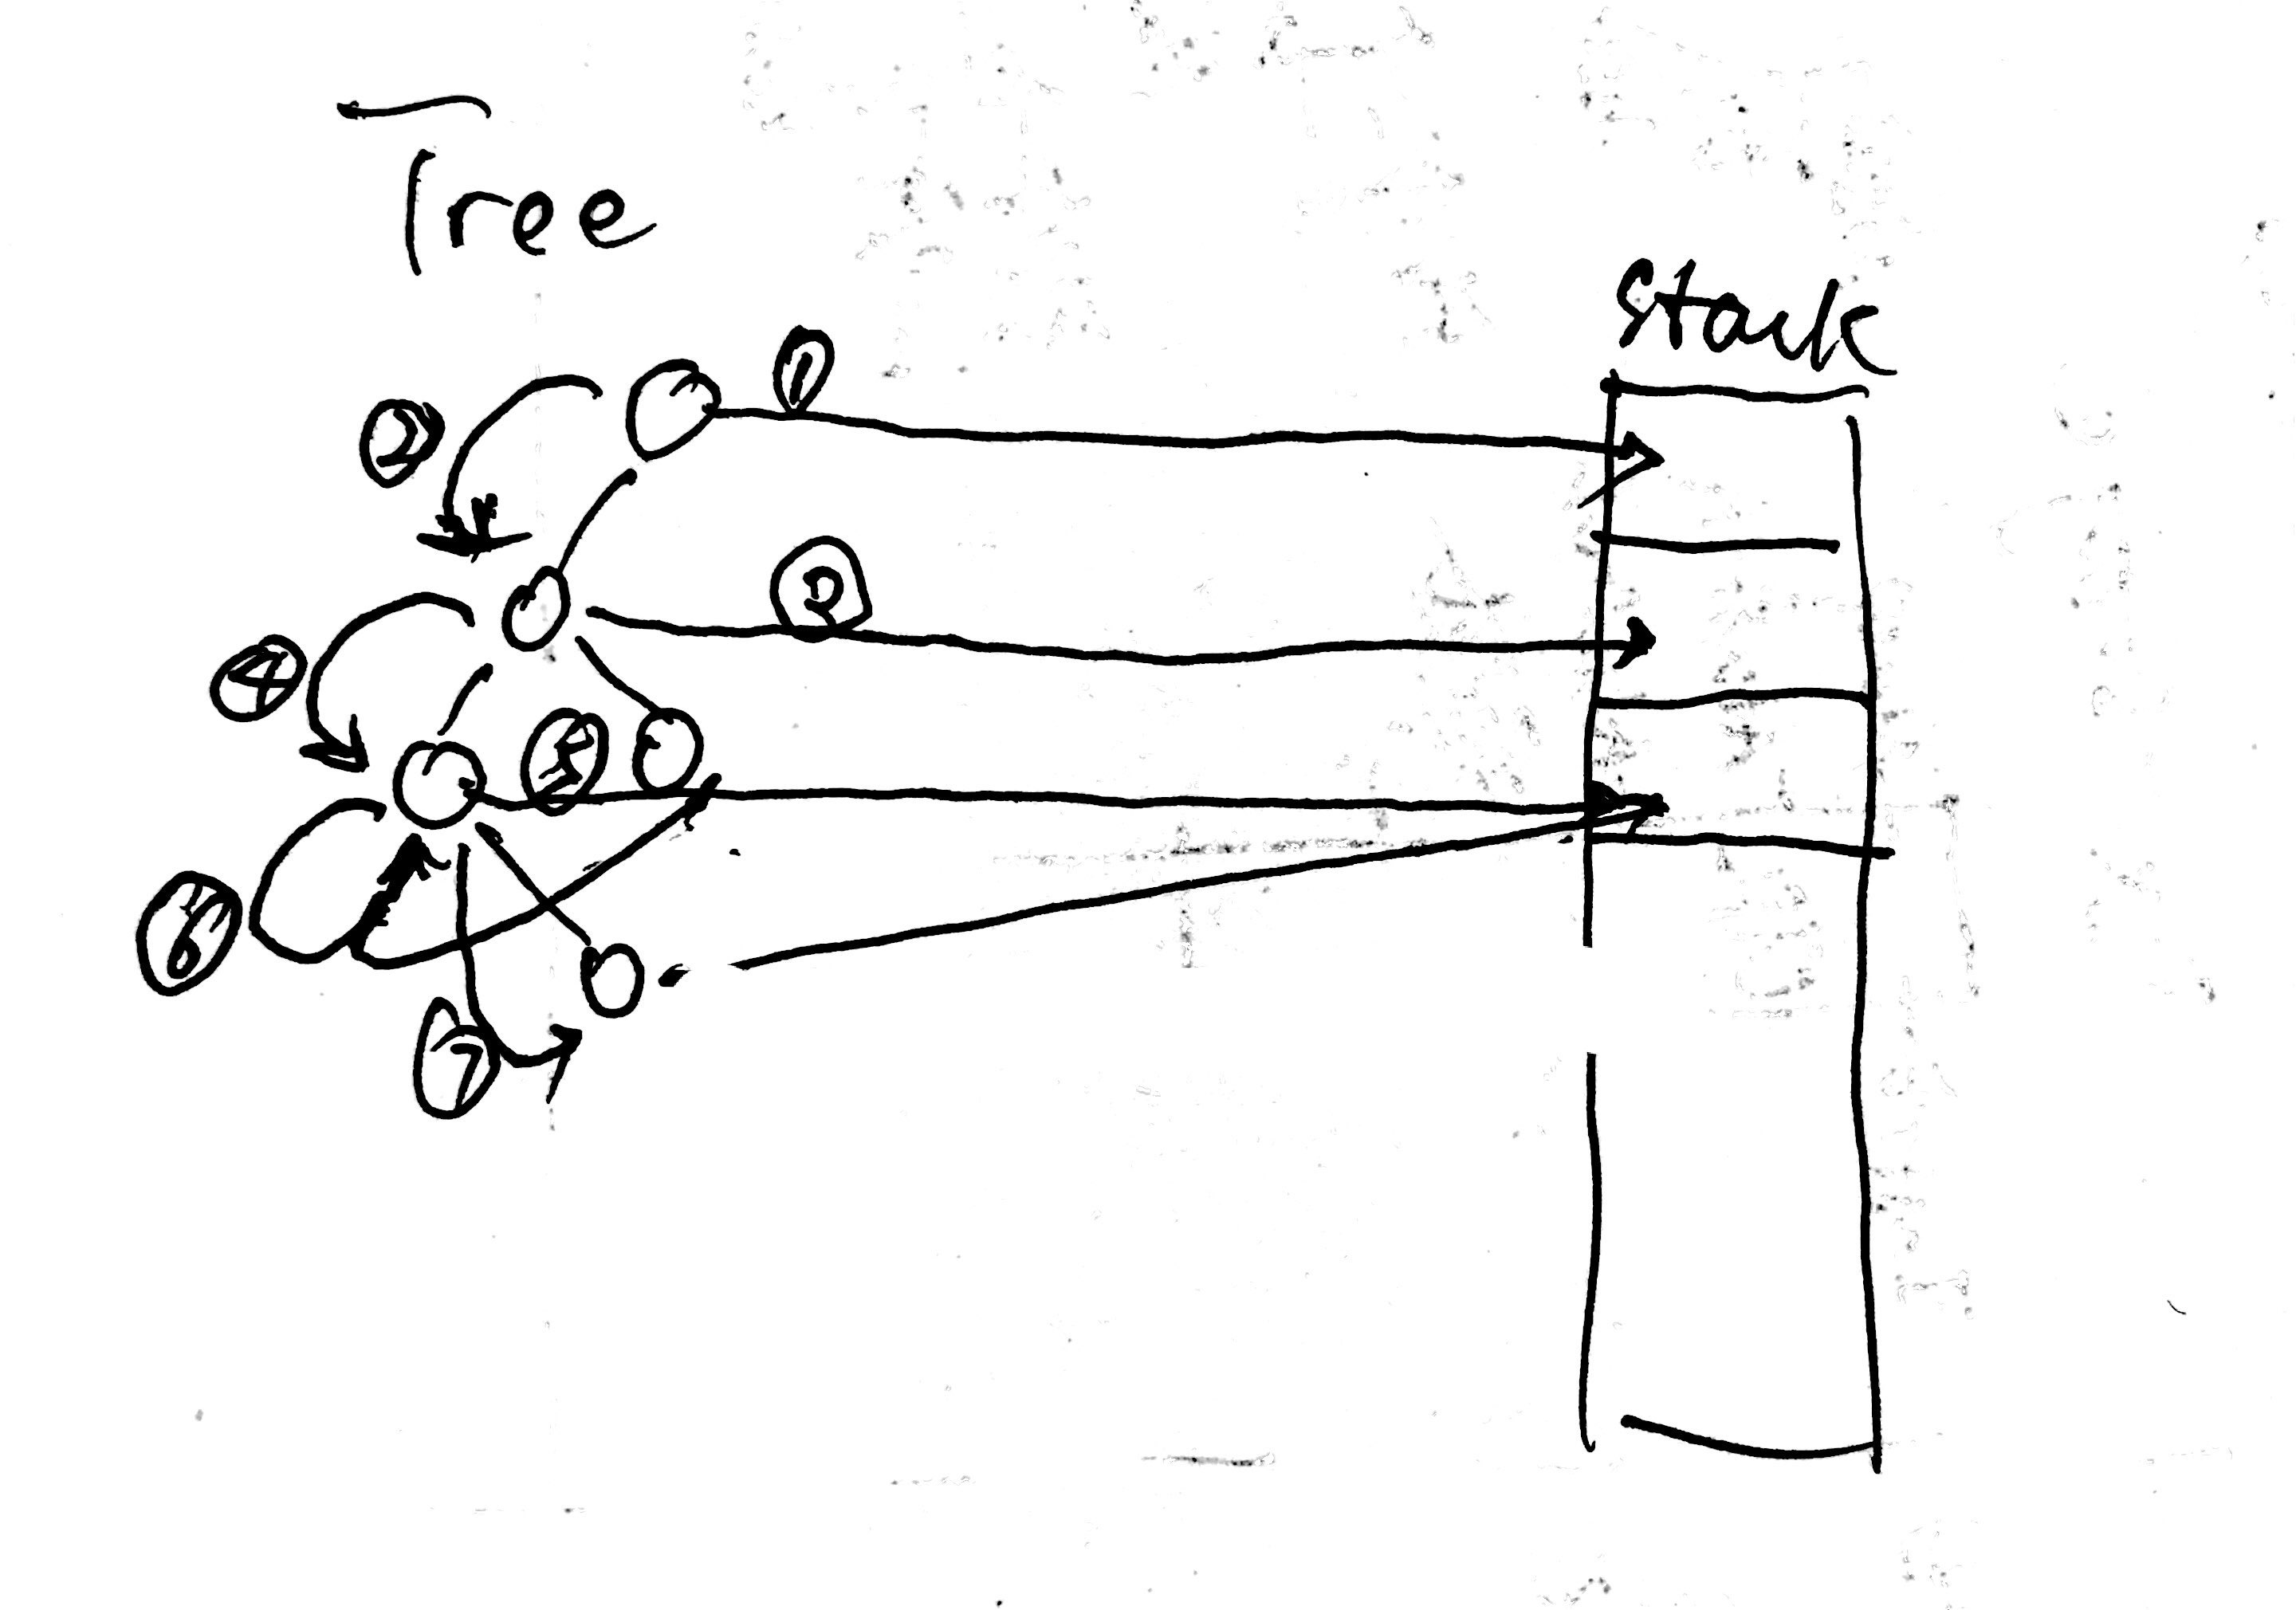 Tree
Stack
①
②
③
④
⑤
⑥
⑦